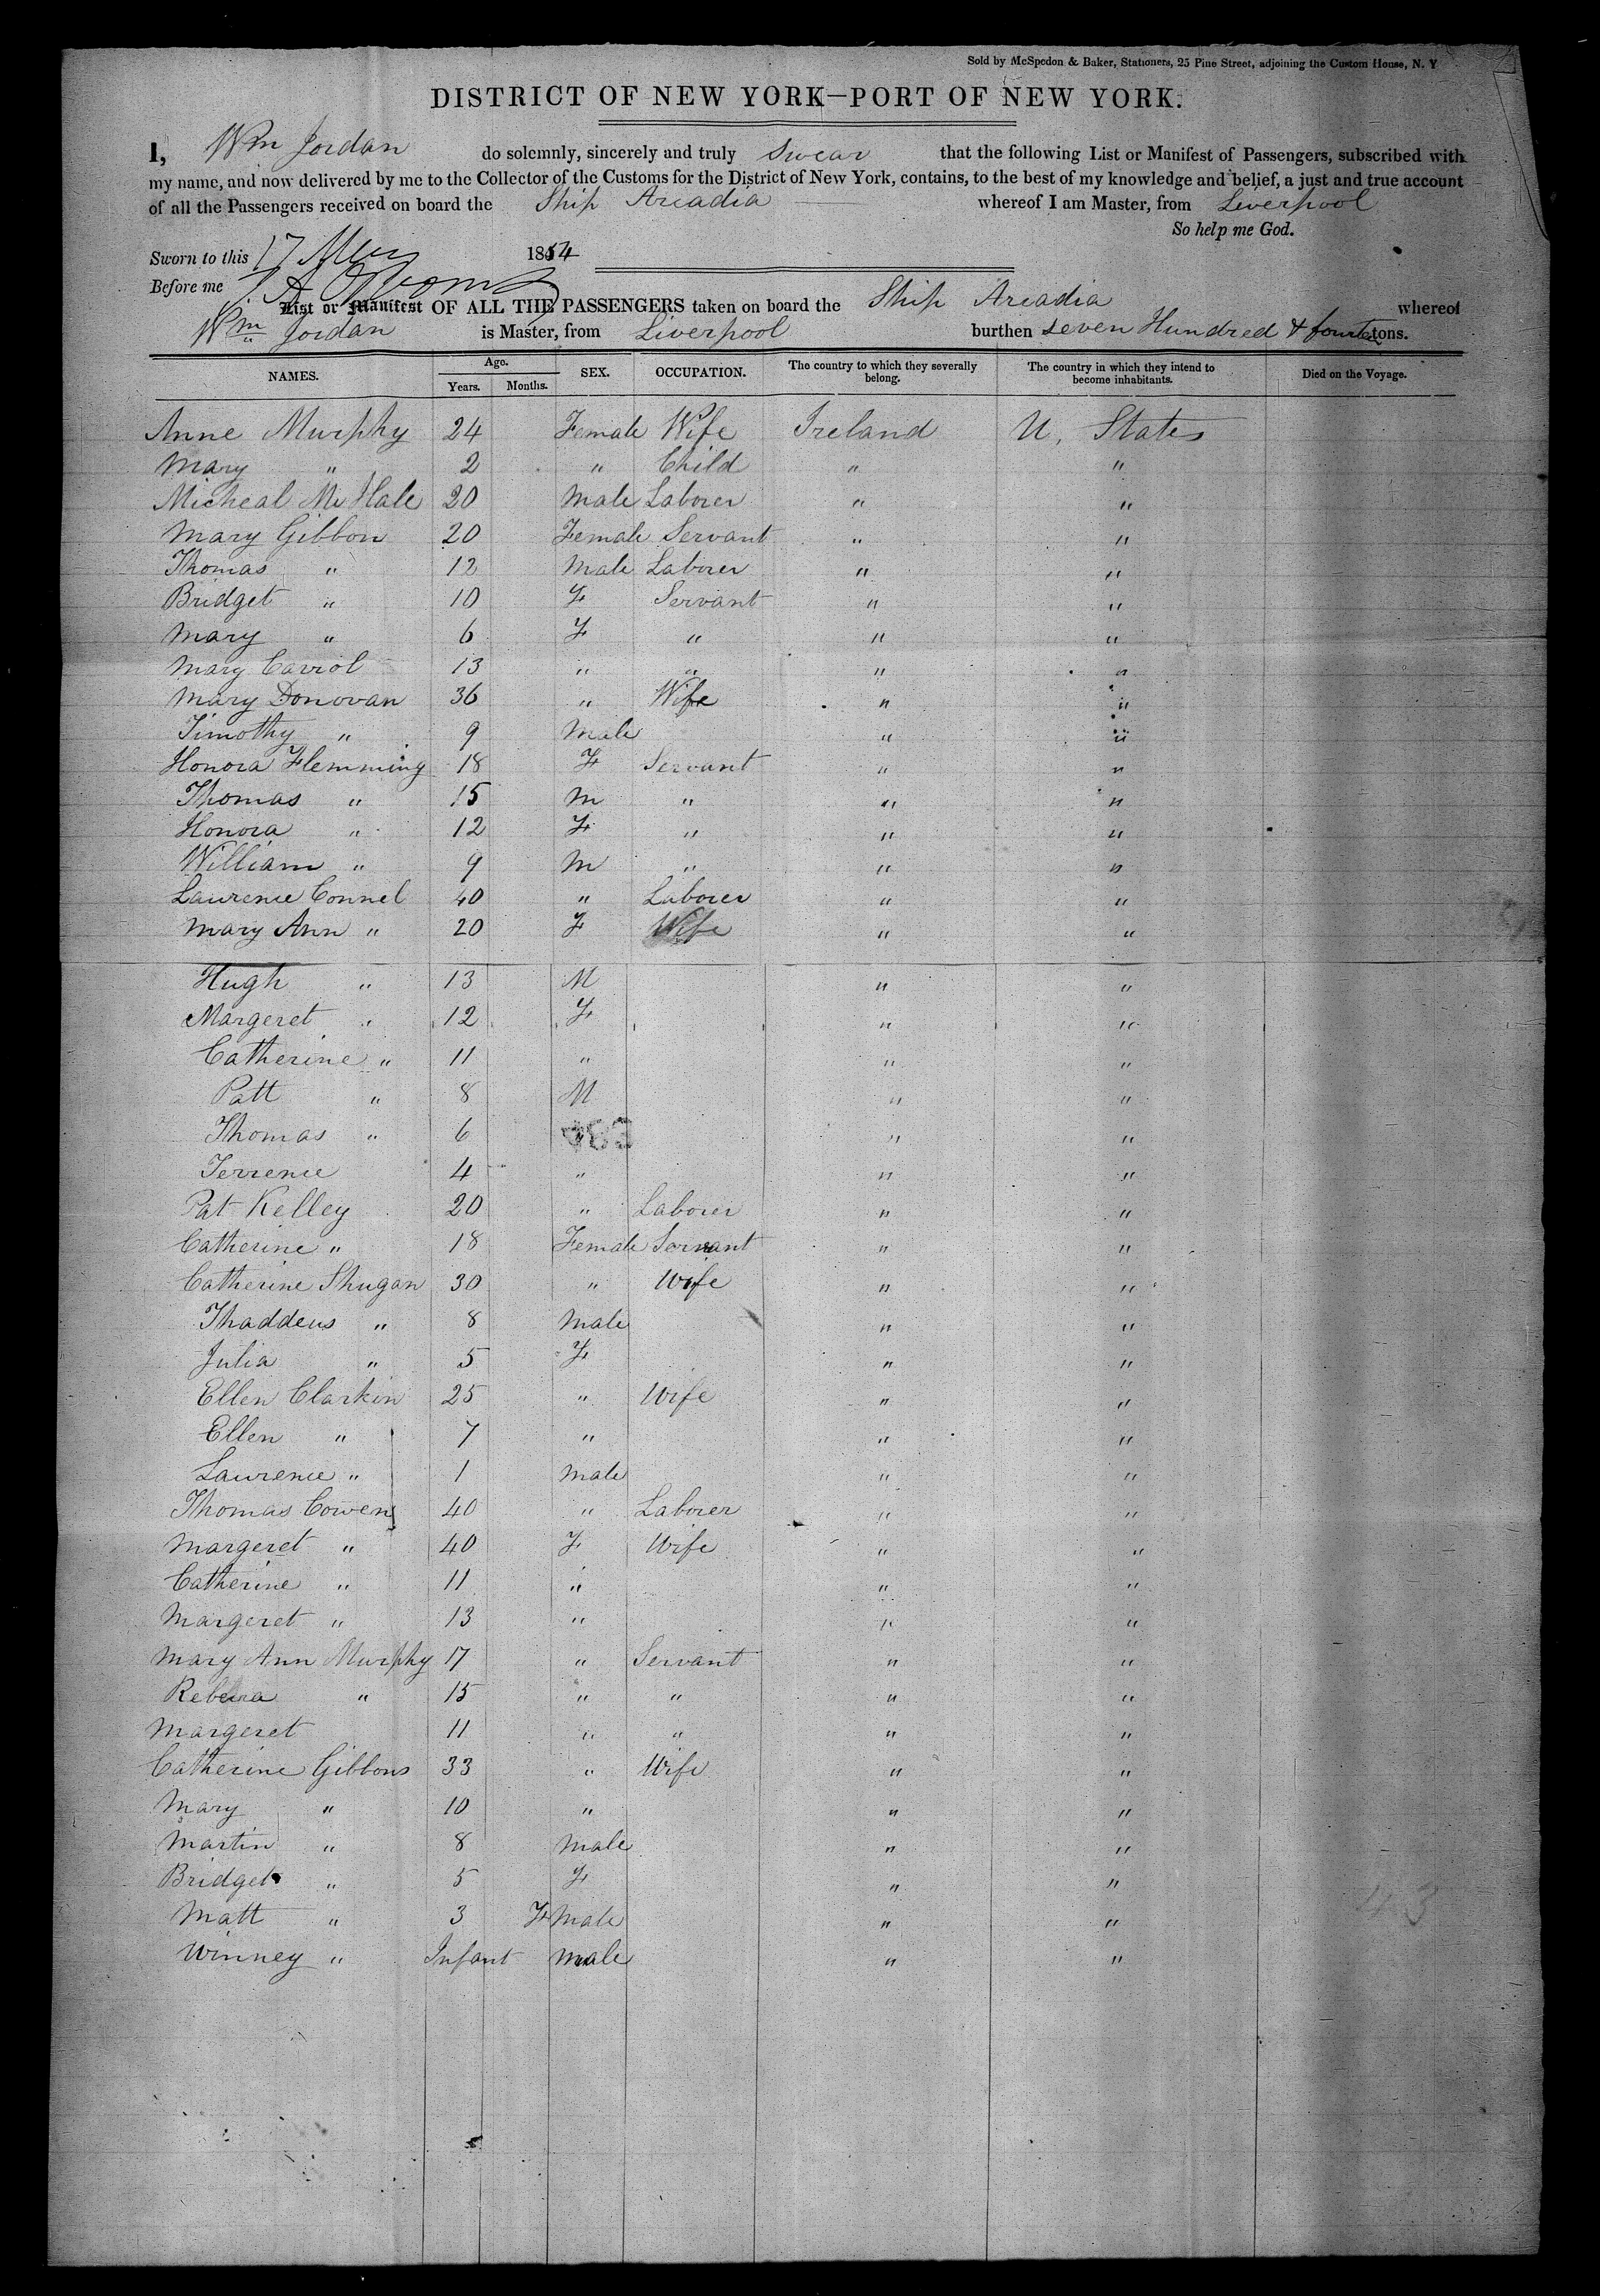 Sold by McSpedon & Baker, Stationers, 25 Pine Street, adjoining the Custom House, N. Y
DISTRICT OF NEW YORK—PORT OF NEW YORK.
I, Wm Jordan do solemnly, sincerely and truly Swear that the following List or Manifest of Passengers, subscribed with
my name, and now delivered by me to the Collector of the Customs for the District of New York, contains, to the best of my knowledge and belief, a just and true account
of all the Passengers received on board the Ship Arcadia whereof I am Master, from Liverpool
So help me God.
Sworn to this 17 1854
Before me
List or Manifest OF ALL THE PASSENGERS taken on board the Ship Arcadia whereof
Wm Jordan is Master, from Liverpool burthen seven Hundred & fourte tons.
NAMES. Age. SEX. OCCUPATION. The country to which they severally belong. The country in which they intend to become inhabitants. Died on the Voyage.
Years. Months.
Anne Murphy 24 Female Wife Ireland U. States
Mary " 2 " Child " "
Micheal Mc Hale 20 Male Laborer " "
Mary Gibbon 20 Female Servant " "
Thomas " 12 Male Laborer " "
Bridget " 10 F Servant " "
Mary " 6 F " " "
Mary Carrol 13 " " " "
Mary Donovan 36 " Wife " "
Timothy " 9 Male " "
Honora Flemming 18 F Servant " "
Thomas " 15 M " " "
Honora " 12 F " " "
William " 9 M " " "
Laurence Connel 40 " Laborer " "
Mary Ann " 20 F Wife " "
Hugh " 13 M " "
Margeret " 12 F " "
Catherine " 11 " " "
Patt " 8 M " "
Thomas " 6 " "
Terrence 4 " " "
Pat Kelley 20 " Laborer " "
Catherine " 18 Female Servant " "
Catherine Shugan 30 " Wife " "
Thaddeus " 8 Male " "
Julia " 5 F " "
Ellen Clarkin 25 " Wife " "
Ellen " 7 " " "
Laurence " 1 Male " "
Thomas Cowen 40 " Laborer " "
Margeret " 40 F Wife " "
Catherine " 11 " " "
Margeret " 13 " " "
Mary Ann Murphy 17 " Servant " "
Rebecca " 15 " " " "
Margeret 11 " " " "
Catherine Gibbons 33 " Wife " "
Mary " 10 " " "
Martin " 8 Male " "
Bridget " 5 F " "
Matt " 3 F Male " "
Winney " Infant Male " "
43